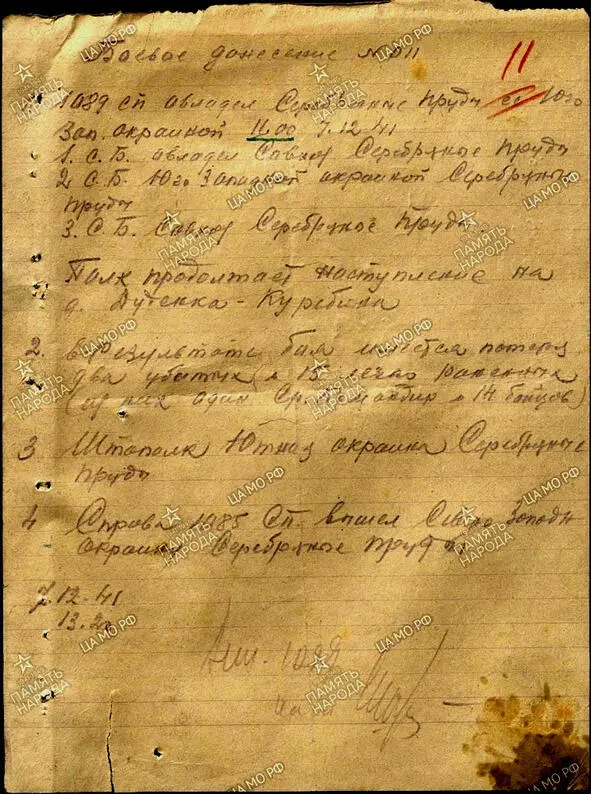 Боевое донесение № 011
11
1089 сп овладел Серебряные Пруды Юго
Зап. окраиной 16.00 7.12-41
1. С.Б. овладел Совхоз Серебряные Пруды
2 С.Б. Юго Западной окраиной Серебряные
Пруды
3. С.Б. Совхоз Серебряные Пруды.
Полк продолжает наступление на
д. Дутенка - Куребина
2. В результате боя имеется потерь
два убитых и 15 легко раненных
(из них один Ср. командир и 14 бойцов)
3 Штаполк Южная окраина Серебряные
Пруды
4 Справа 1985 СП вышел Северо Западн
окраину Серебряные Пруды
7.12-41
13.20